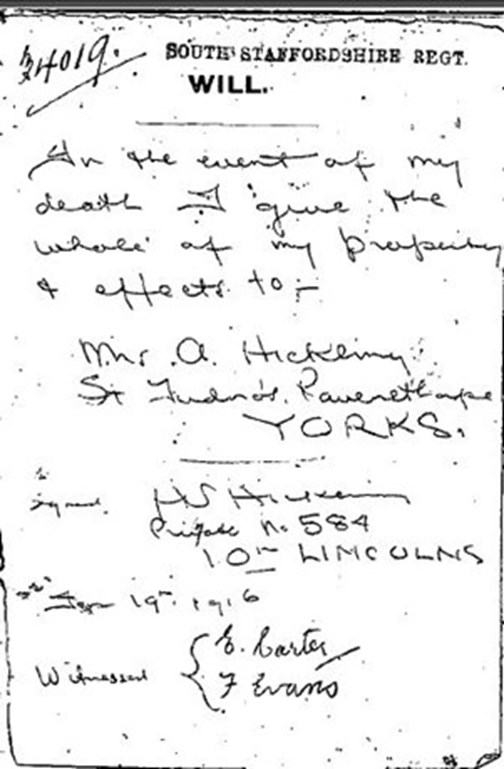 24019.
SOUTH STAFFORDSHIRE REGT.
WILL.
In the event of my
death I give the
whole of my property
& effects to:-
Mrs. A. Hickling
St Ravensthorpe
YORKS.
Signed. H S Hickling
Private No 584
10th LINCOLNS
19th 1916
Witnessed { E. Carter
F Evans